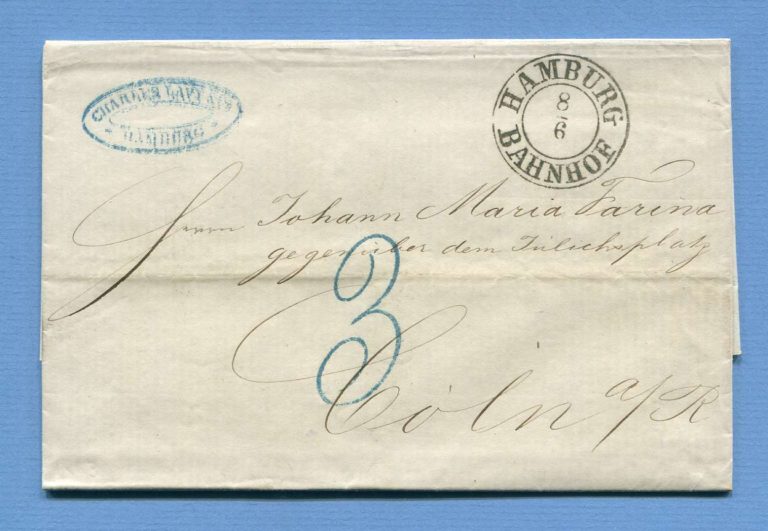 CHARLES
HAMBURG
HAMBURG
8
6
BAHNHOF
Herrn Johann Maria Farina
gegenüber dem Jülichsplatz
3
Cöln a/R